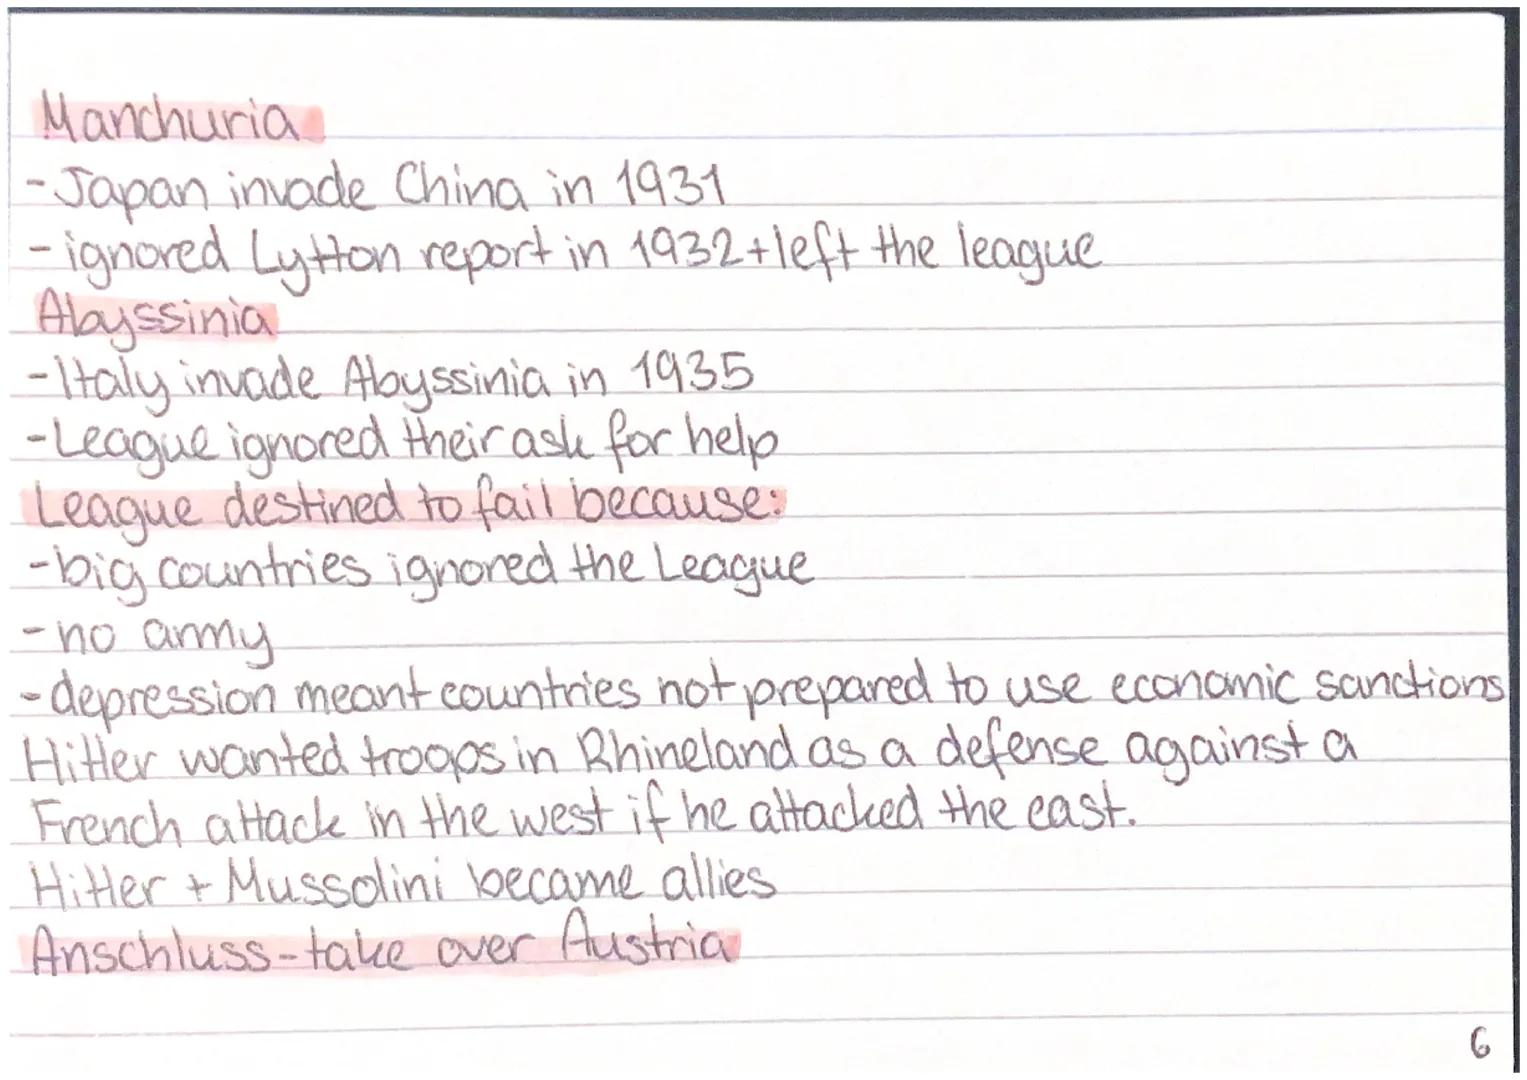 Manchuria
- Japan invade China in 1931
- ignored Lytton report in 1932 + left the league
Abyssinia
- Italy invade Abyssinia in 1935
- League ignored their ask for help
League destined to fail because:
- big countries ignored the League
- no army
- depression meant countries not prepared to use economic sanctions
Hitler wanted troops in Rhineland as a defense against a
French attack in the west if he attacked the east.
Hitler + Mussolini became allies
Anschluss - take over Austria
6